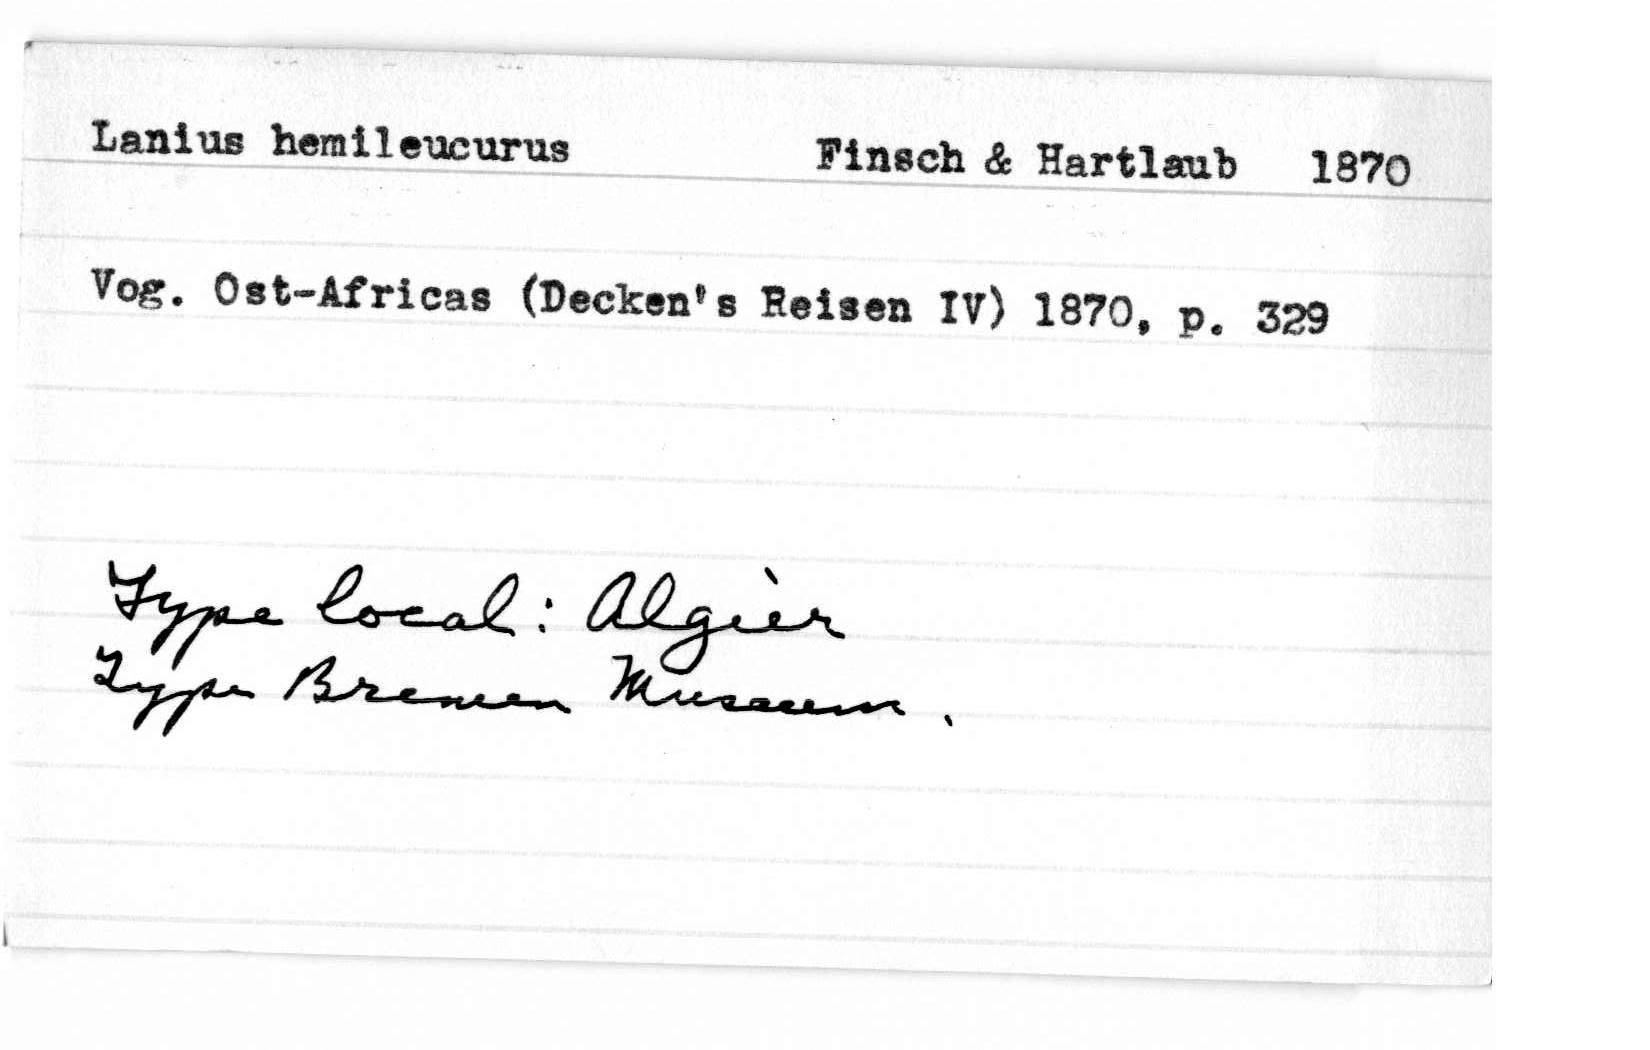 Lanius hemileucurus Finsch & Hartlaub 1870
Vog. Ost-Africas (Decken's Reisen IV) 1870, p. 329
Type local: Algièr
Type Bremen Museum.